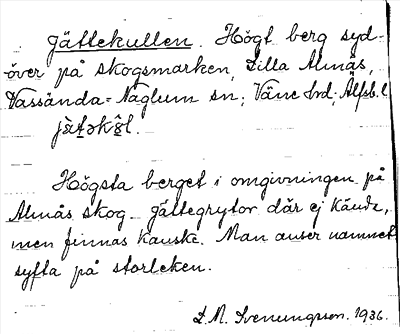 Jättekullen. Högt berg syd-
över på skogsmarken, Lilla Almås,
Vassända-Naglum sn; Väne hd; Älfsb. l
jä̀t̠ək l.
Högsta berget i omgivningen på
Almås skog. Jättegrytor där ej kända,
men finnas kanske. Man anser namnet
syfta på storleken.
L. M. Svenungsson. 1936.